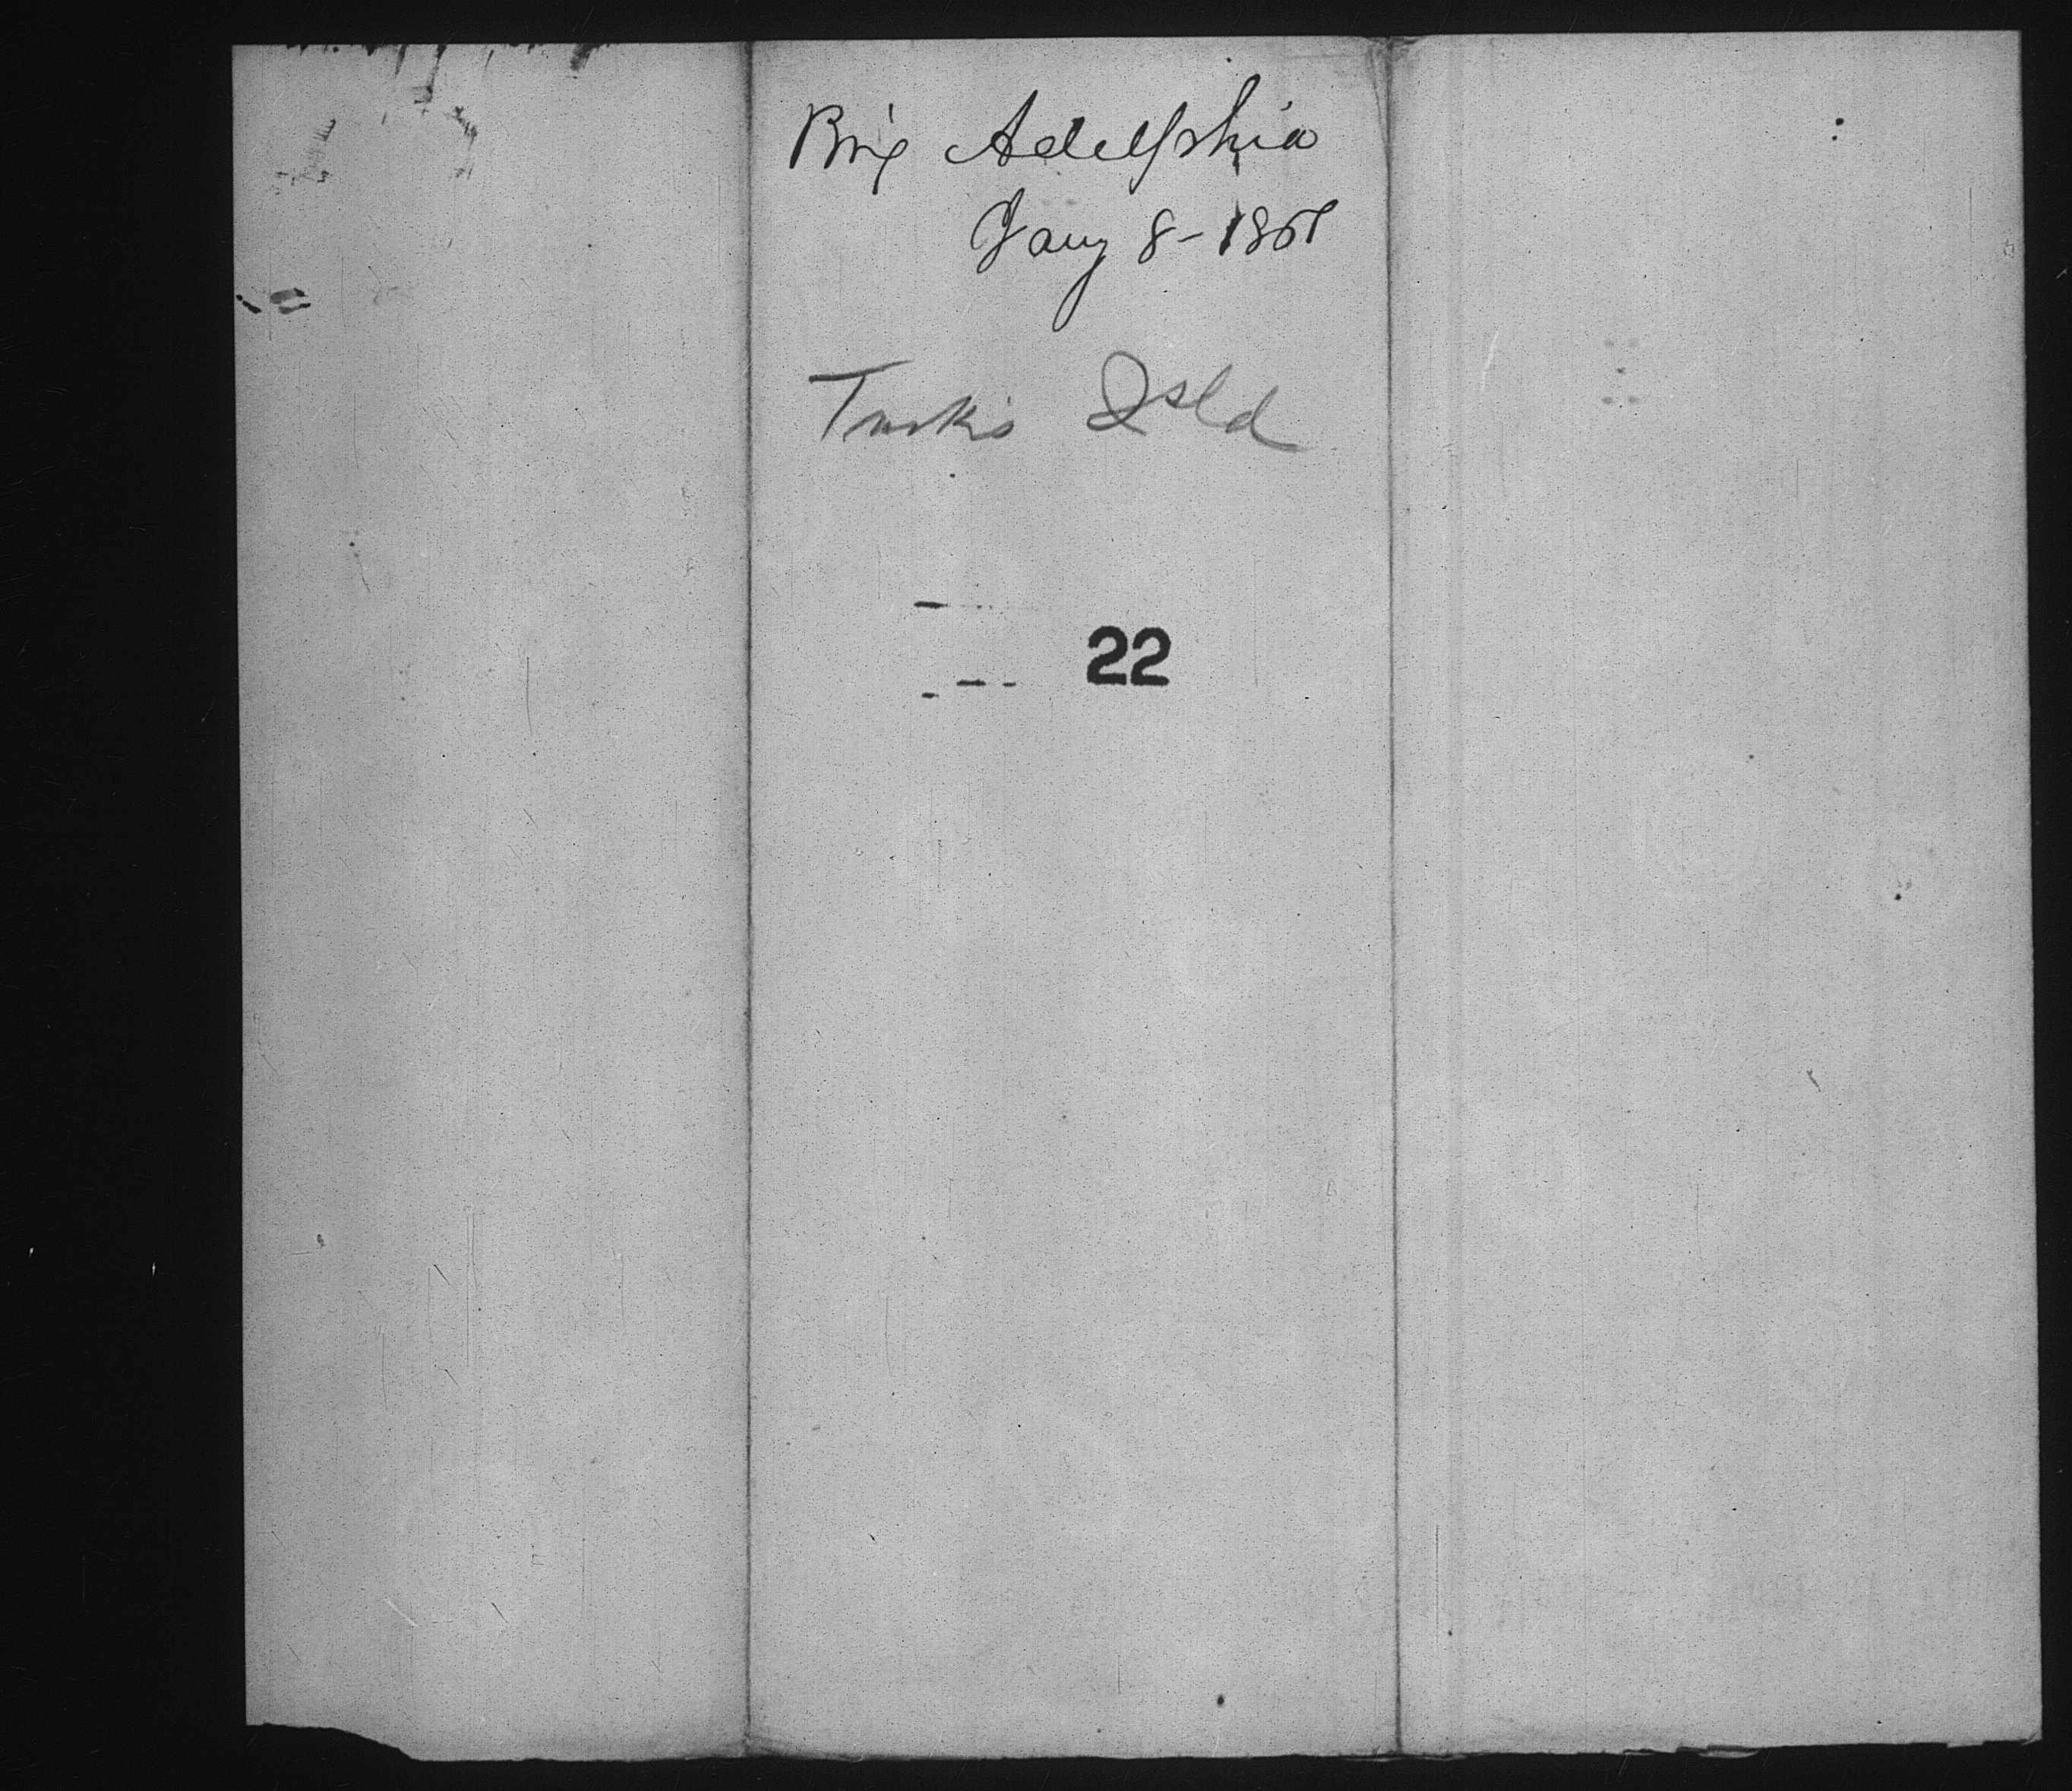 Brig Adelphia
Jany 8-1861
Turks Isld
22